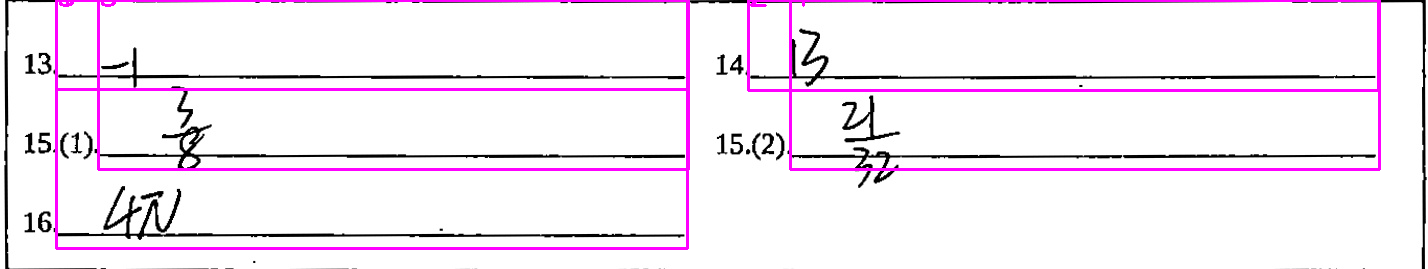 13. -1 14. 13
15.(1). 3/8 15.(2). 21/32
16. 4π